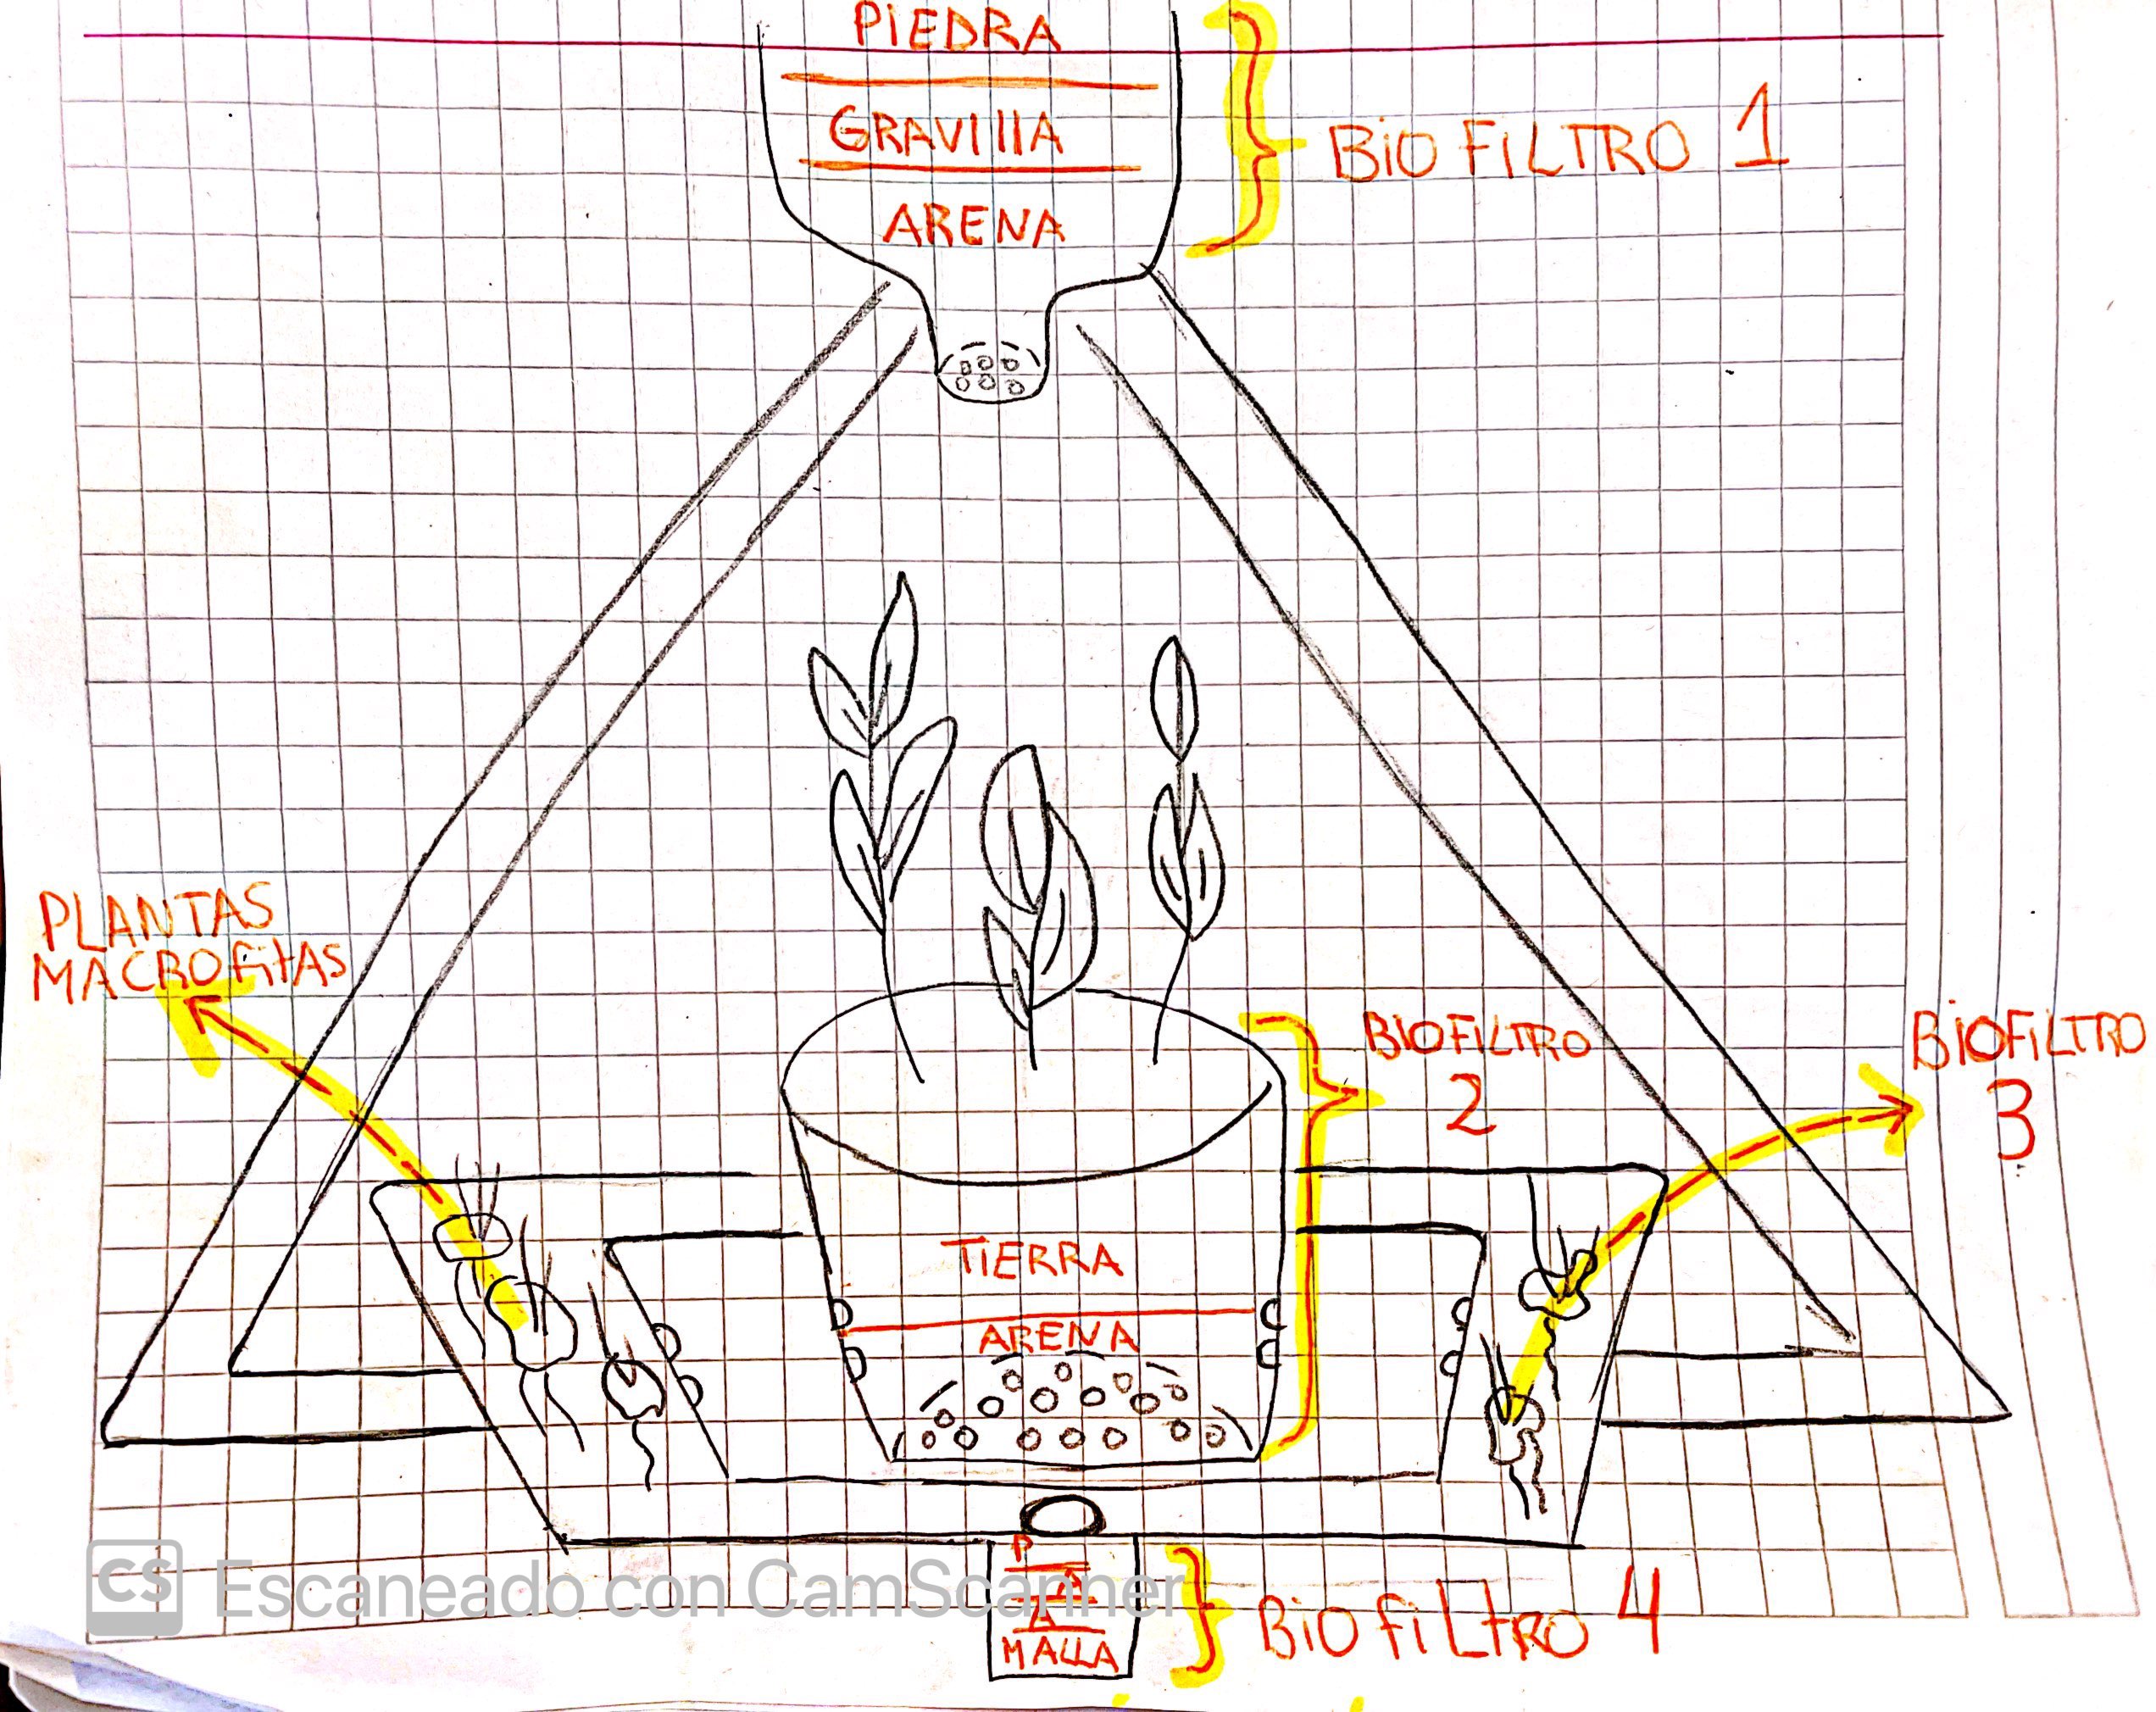 PIEDRA
GRAVIllA
ARENA
BiO FILTRO 1
PLANTAS
MACROfitAS
BIOFILTRO
2
BiOFiLTRO
3
TIERRA
ARENA
P
A
MALLA
BiO fiLtRO 4
CS Escaneado con CamScanner